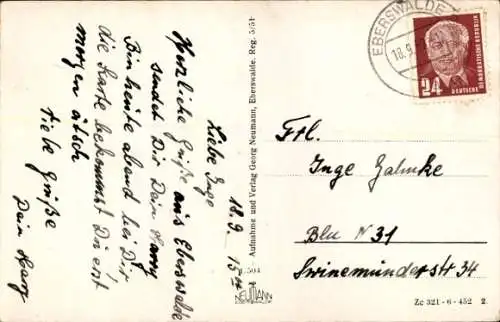 18.9. 15°°
Liebe Inge
Herzliche Grüße aus Eberswalde
sendet Dir Dein Harry
Bin heute abend bei Dir
die Karte bekommst Du erst
morgen ätsch!
Viele Grüße
Dein Harry
Aufnahme und Verlag Georg Neumann, Eberswalde. Reg. 5/51
NEUMANN
EBERSWALDE
18.9.
24
DEUTSCHE
DEMOKRATISCHE REPUBLIK
Frl.
Inge Gahnke
Bln N 31
Swinemünderstr 34
Ze 321 - 6 - 452 2.